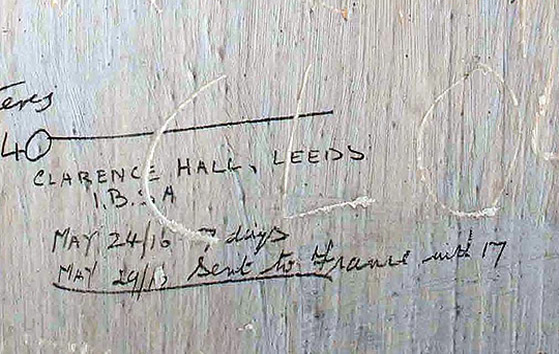 40
CLARENCE HALL, LEEDS
I.B.S.A
MAY 24/16 7 days
MAY 29/16 Sent to France with 17
CLO